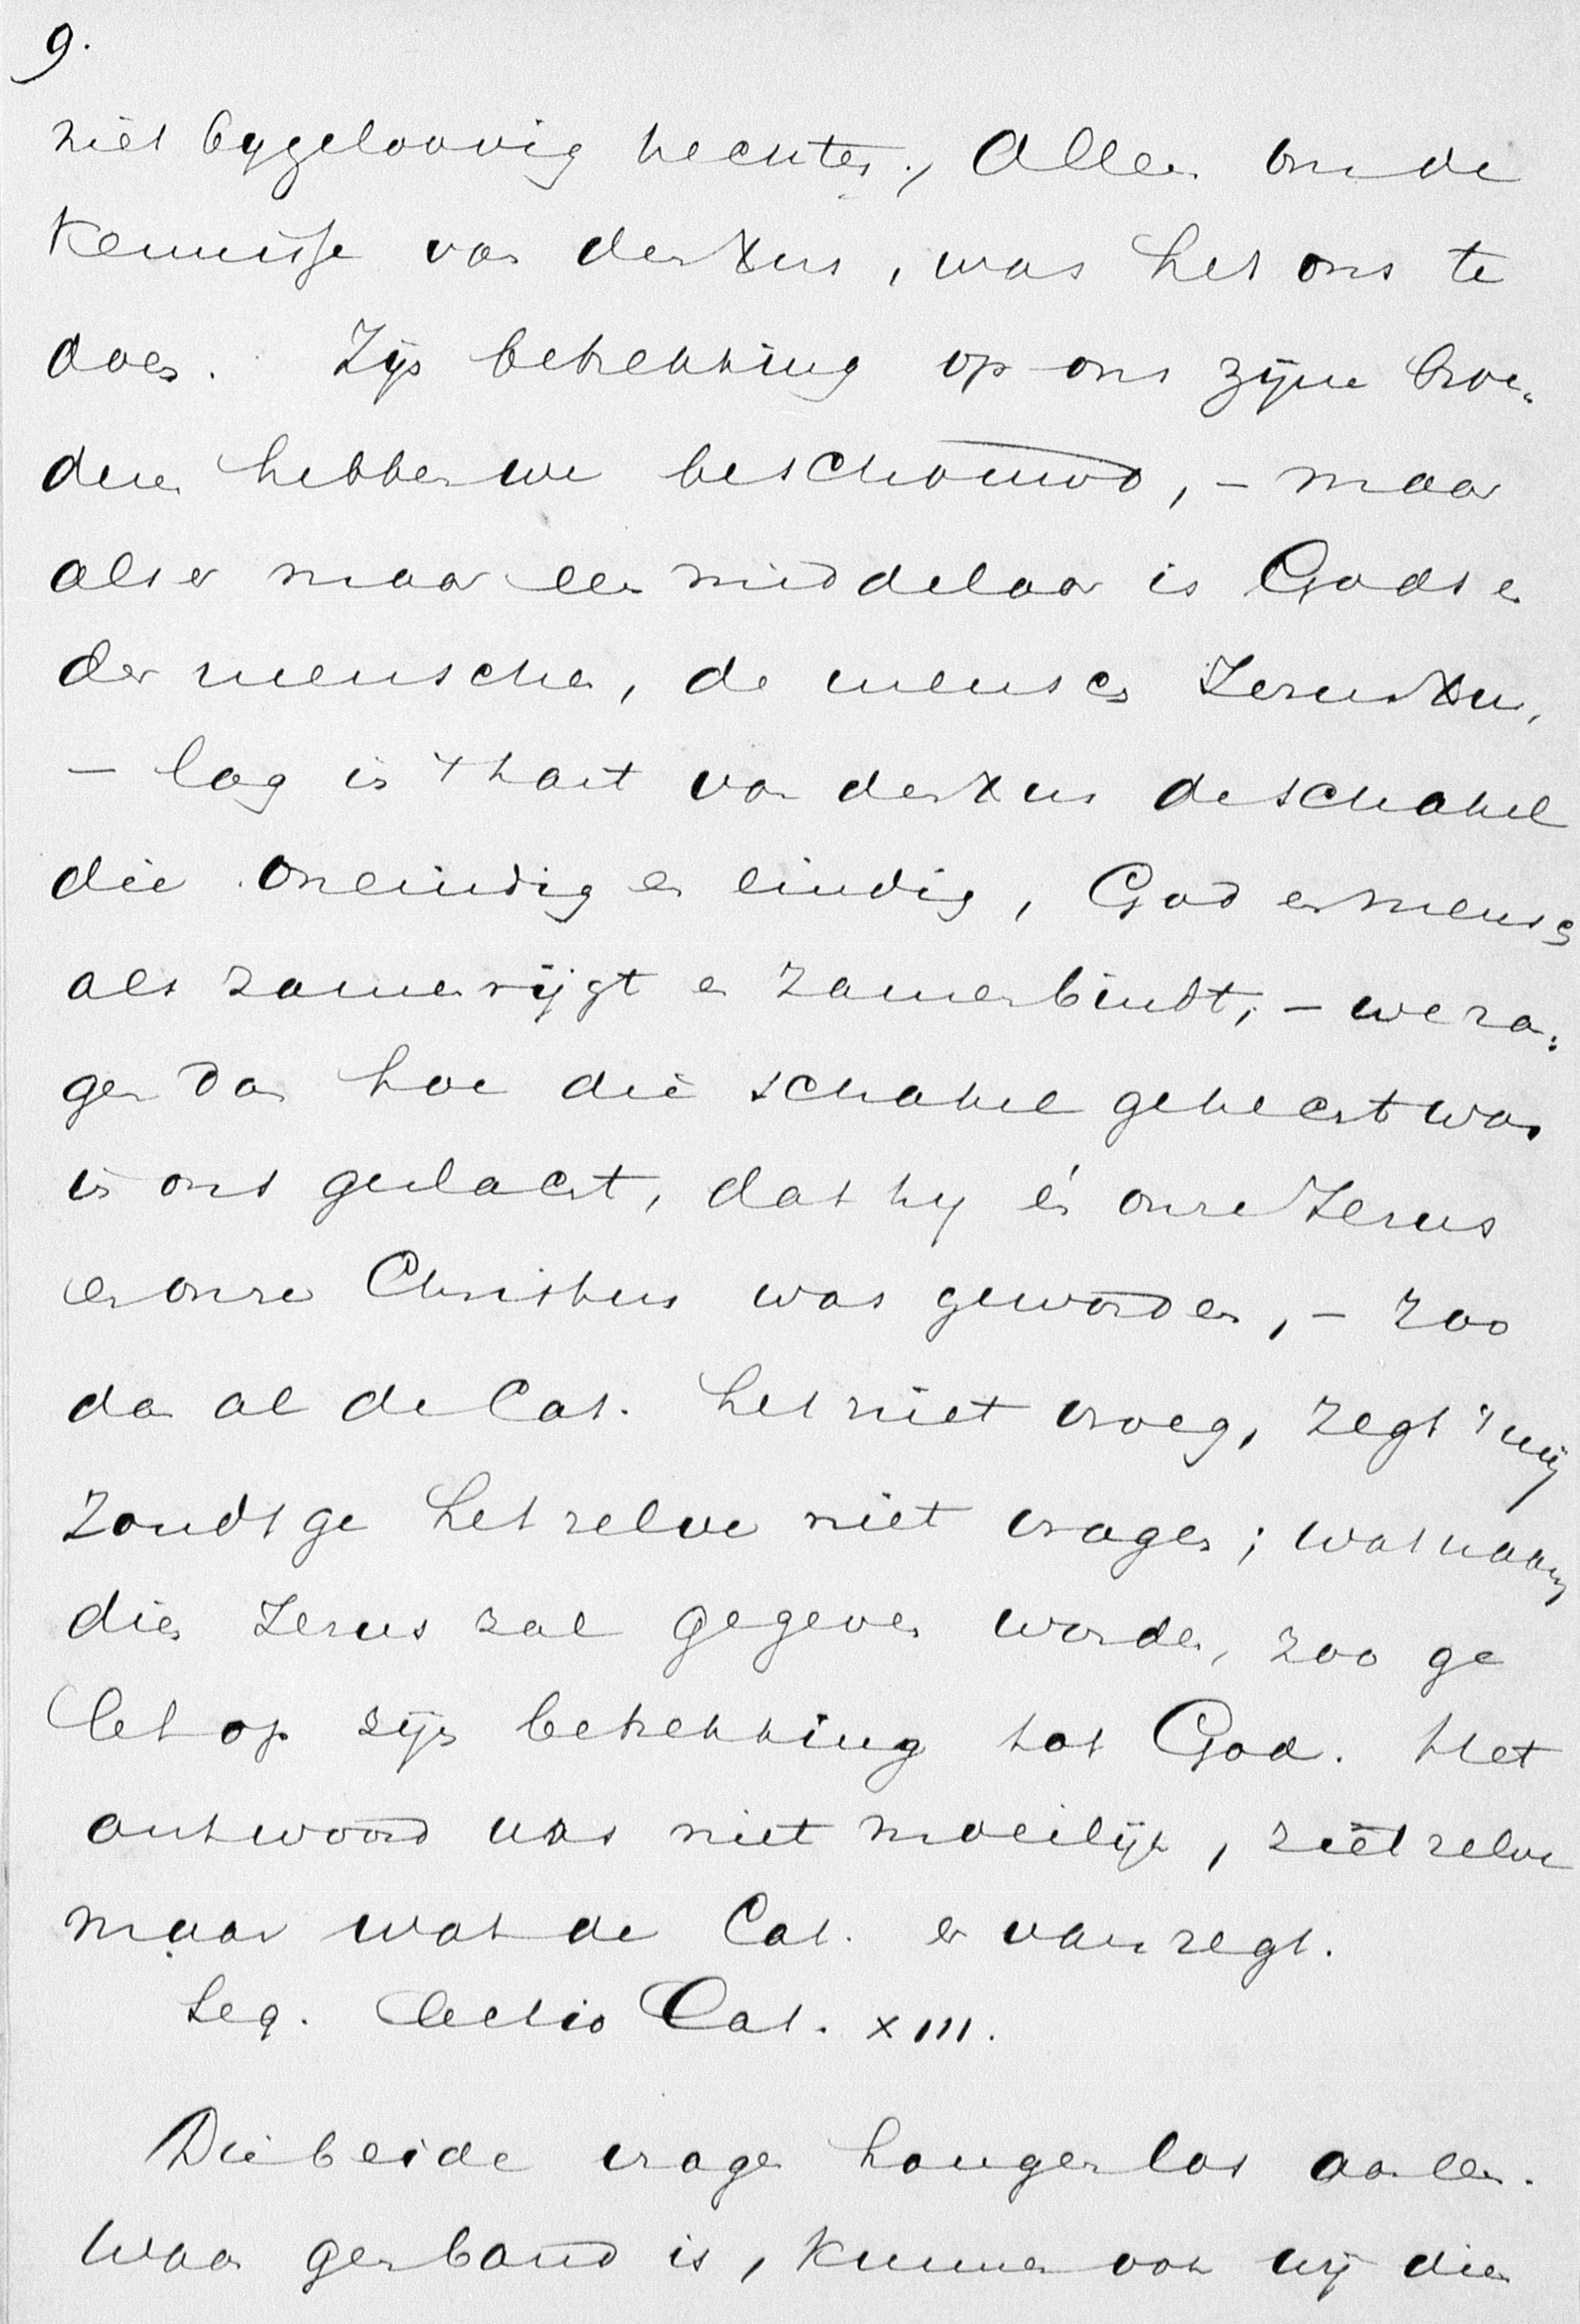 9.
niet bygeloovig hechten., Alleen om de
kennisse van den Xus, was het ons te
doen. Zijn betrekking op ons zijne broe„
deren hebben we beschouwd, – maar
als er maar een middelaar is Gods en
der menschen, de mensch Jezus Xus,
– lag in 't hart van den Xus de schakel
die oneindig en eindig, God en mensch
als zamenrijgt en zamenbindt, – we za„
gen dan hoe die schakel gehecht was
in ons geslacht, dat hy én onze Jezus
en onze Christus was geworden, – zoo
dan al de Cat. het niet vroeg, zegt 't mij
zoudt ge het zelve niet vragen; wat naam
dien Jezus zal gegeven worden, zoo ge
let op zijn betrekking tot God. Het
antwoord was niet moeilijk, ziet zelve
maar wat de Cat. er van zegt.
Seq. lectio Cat. XIII.
Die beide vragen hangen los aan een.
Waar geen band is, kunnen ook wij dien